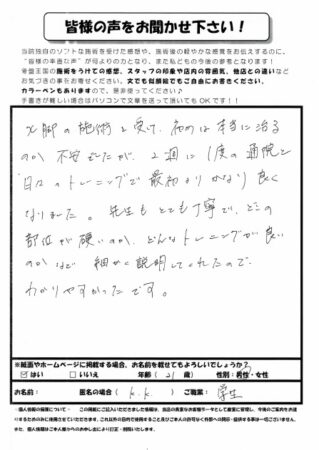 皆様の声をお聞かせ下さい！
当院独自のソフトな施術を受けた感想や、施術後の軽やかな感覚をお伝えするのに、
"皆様の率直な声"が何よりの力となり、また私どもの今後の参考となります。
骨盤王国の施術をうけての感想、スタッフの印象や店内の雰囲気、他店との違いなど
お気づき事をお書きください。文でも似顔絵でもご自由にお書きください。
カラーペンもありますので、是非使ってください♪
手書きが難しい場合はパソコンで文章を送って頂いてもOKです！！
X脚の施術を受け、初めは本当に治る
のか不安でたが、2週に1度の通院と
日々のトレーニングで最初よりかなり良く
なりました。先生もとても丁寧で、どこの
部位が硬いのか、どんなトレーニングが良い
のかなど細かく説明してくれたので
わかりやすかったです。
※紙面やホームページに掲載する場合、お名前を載せてもよろしいでしょうか？
☑はい □いいえ 年齢（21歳） 性別：男性・女性
お名前： 匿名の場合（k.k.） ご職業：学生
・個人情報の保護について・ この掲載にご記入いただきました情報は、当店の貴重なお客様データとして厳重に管理し、今後のご案内をお送
りするためのみに使用させていただきます。これ以外の目的で使用すること及びご本人の許可なく外部への開示・提供する事は一切ございません。
また、個人情報はご本人様からのお申し出により訂正・削除いたします。